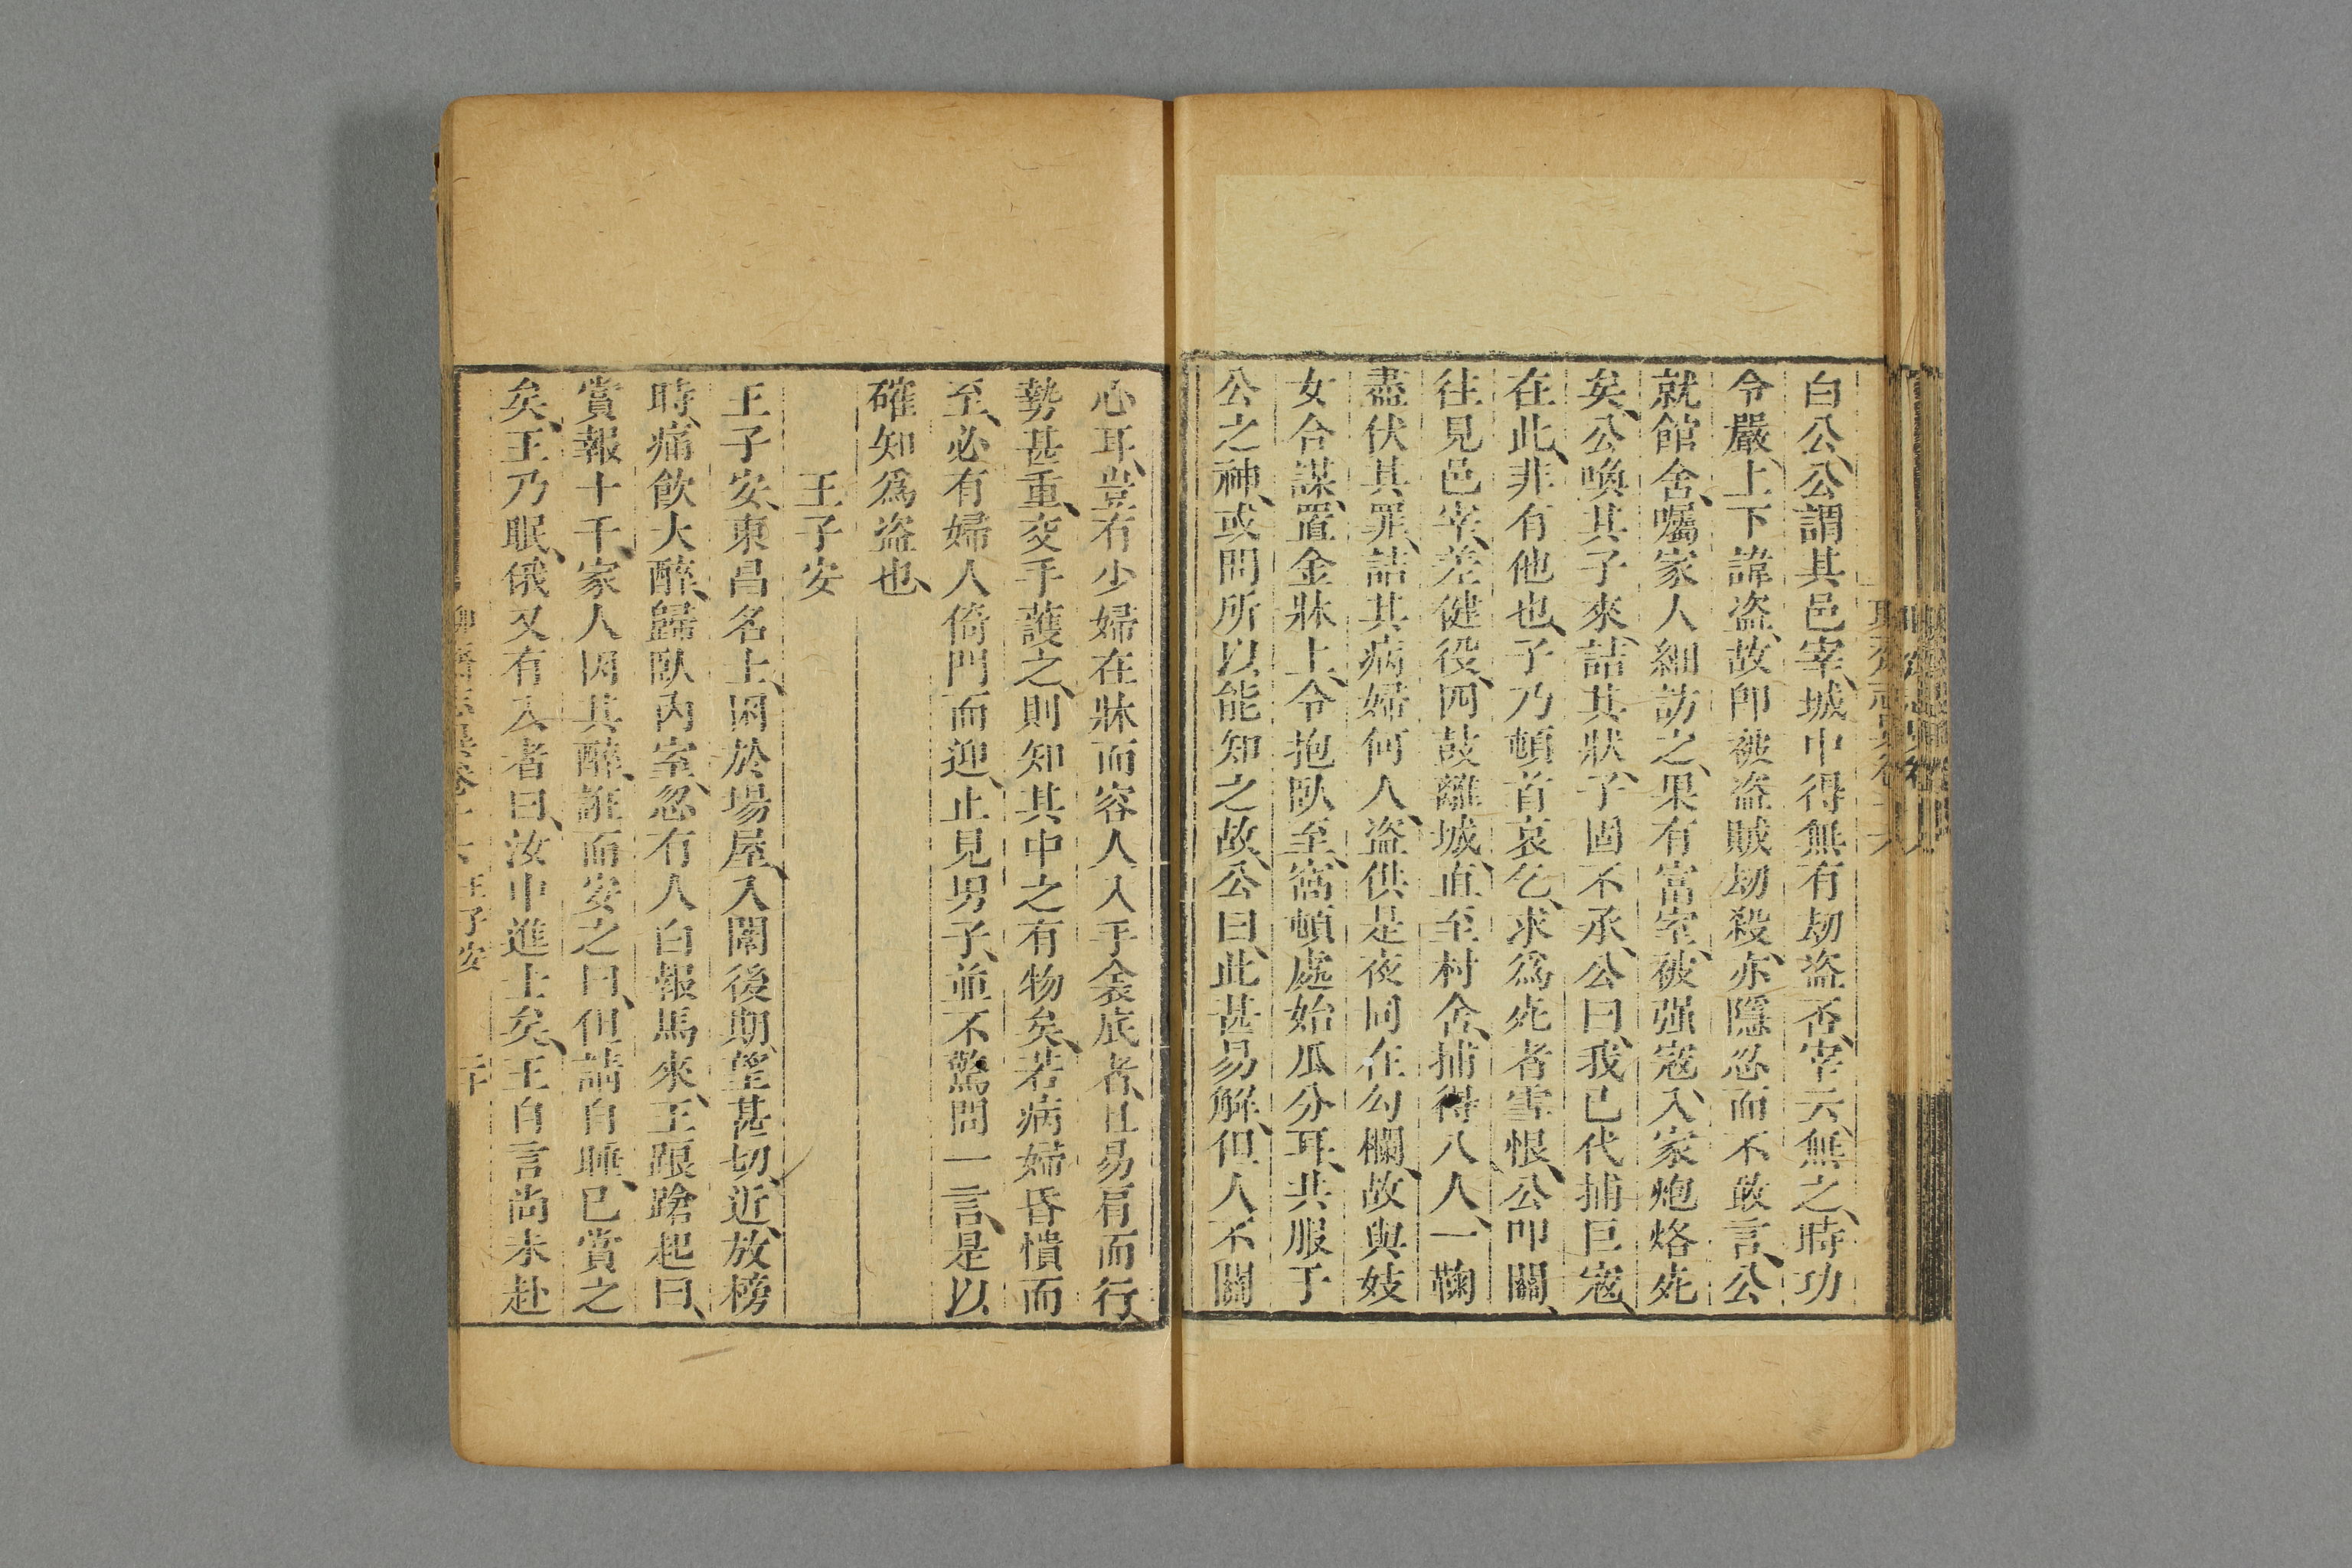 白公、公謂其邑宰、城中得無有刼盜否、宰云、無之、時功
令嚴、上下諱盜、故卽被盜賊刼殺、亦隱忍而不敢言、公
就館舍、囑家人細訪之、果有富室、被强寇入家炮烙死
矣、公喚其子來、詰其狀、子固不承、公曰、我已代捕巨寇、
在此、非有他也、子乃頓首哀乞、求爲死者雪恨、公叩關、
往見邑宰、差健役、四鼓離城、直至村舍、捕得八人、一鞠
盡伏其罪、詰其病婦何人、盜供是夜同在勾欄、故與妓
女合謀、置金牀上、令抱臥至窩頓處始瓜分耳、共服于
公之神、或問所以能知之故、公曰、此甚易解、但人不關
心耳、豈有少婦在牀而容人入手衾底者、且易肩而行、
勢甚重、交手護之、則知其中之有物矣、若病婦昏憒而
至、必有婦人倚門而迎、止見男子、並不驚問一言、是以
確知爲盜也、
王子安
王子安、東昌名士、困於場屋、入闈後期望甚切、近放榜
時、痛飮大醉、歸臥內室、忽有人白報馬來、王踉蹌起曰、
賞報十千、家人因其醉、誑而安之曰、但請自睡、已賞之
矣、王乃眠、俄又有入者曰、汝中進士矣、王自言尚未赴
王子安